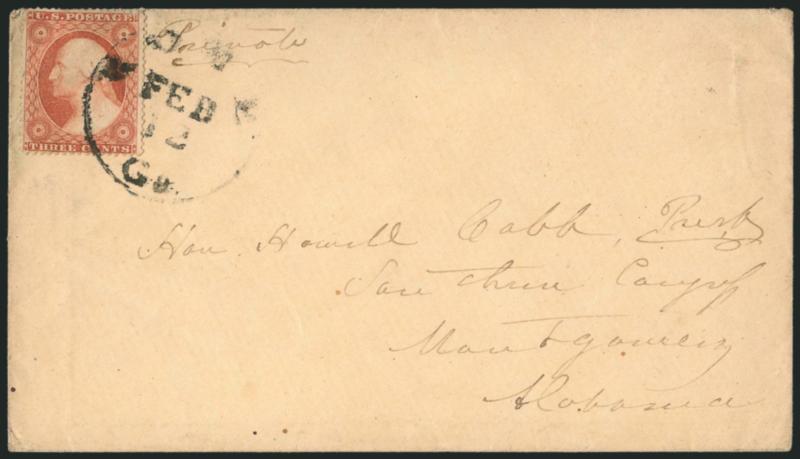 U.S. POSTAGE
THREE CENTS
Private
FEB
2
Ga.
Hon. Howell Cobb, Prest
Southern Congress
Montgomery
Alabama